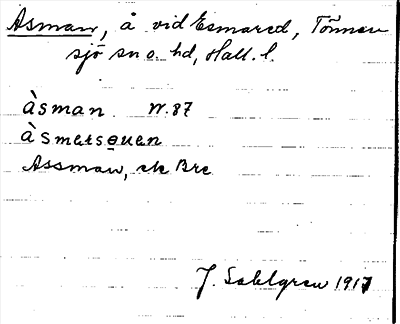 Åsman, å vid Esmared, Tönner
sjö sn o. hd, Hall. l.
àsman W. 87
àsmetsǫuen
Assman, ek Bre
J. Sahlgren 1917